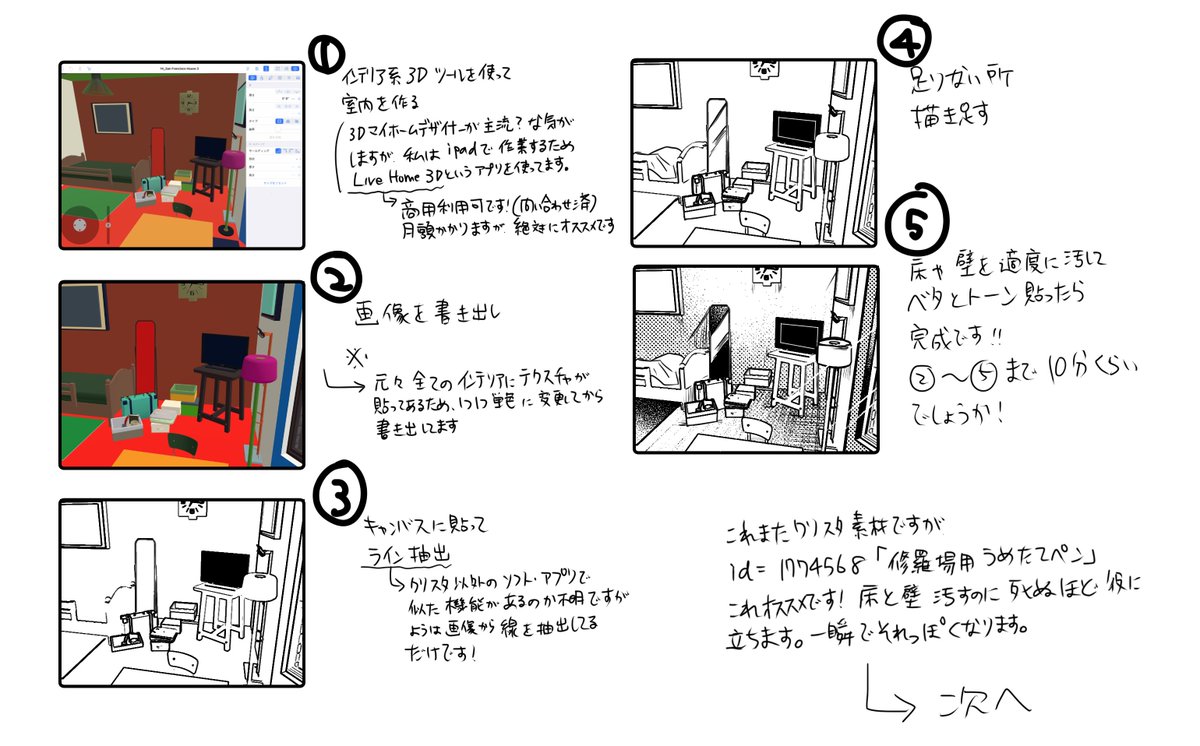 ①
インテリア系3Dツールを使って
室内を作る
3Dマイホームデザイナーが主流?な気が
しますが、私はipadで作業するため
Live Home 3Dというアプリを使ってます。
商用利用可です!(問い合わせ済)
月額かかりますが、絶対にオススメです
②
画像を書き出し
※
元々全てのインテリアにテクスチャが
貼ってあるため、1つ1つ単色に変更してから
書き出してます
③
キャンバスに貼って
ライン抽出
クリスタ以外のソフト・アプリで
似た機能があるのか不明ですが
ようは画像から線を抽出してる
だけです!
④
足りない所
描き足す
⑤
床や壁を適度に汚して
ベタとトーン貼ったら
完成です!!
②〜⑤まで10分くらい
でしょうか!
これまたクリスタ素材ですが
id=1774568「修羅場用うめたてペン」
これオススメです!床と壁汚すのに死ぬほど役に
立ちます。一瞬でそれっぽくなります。
次へ